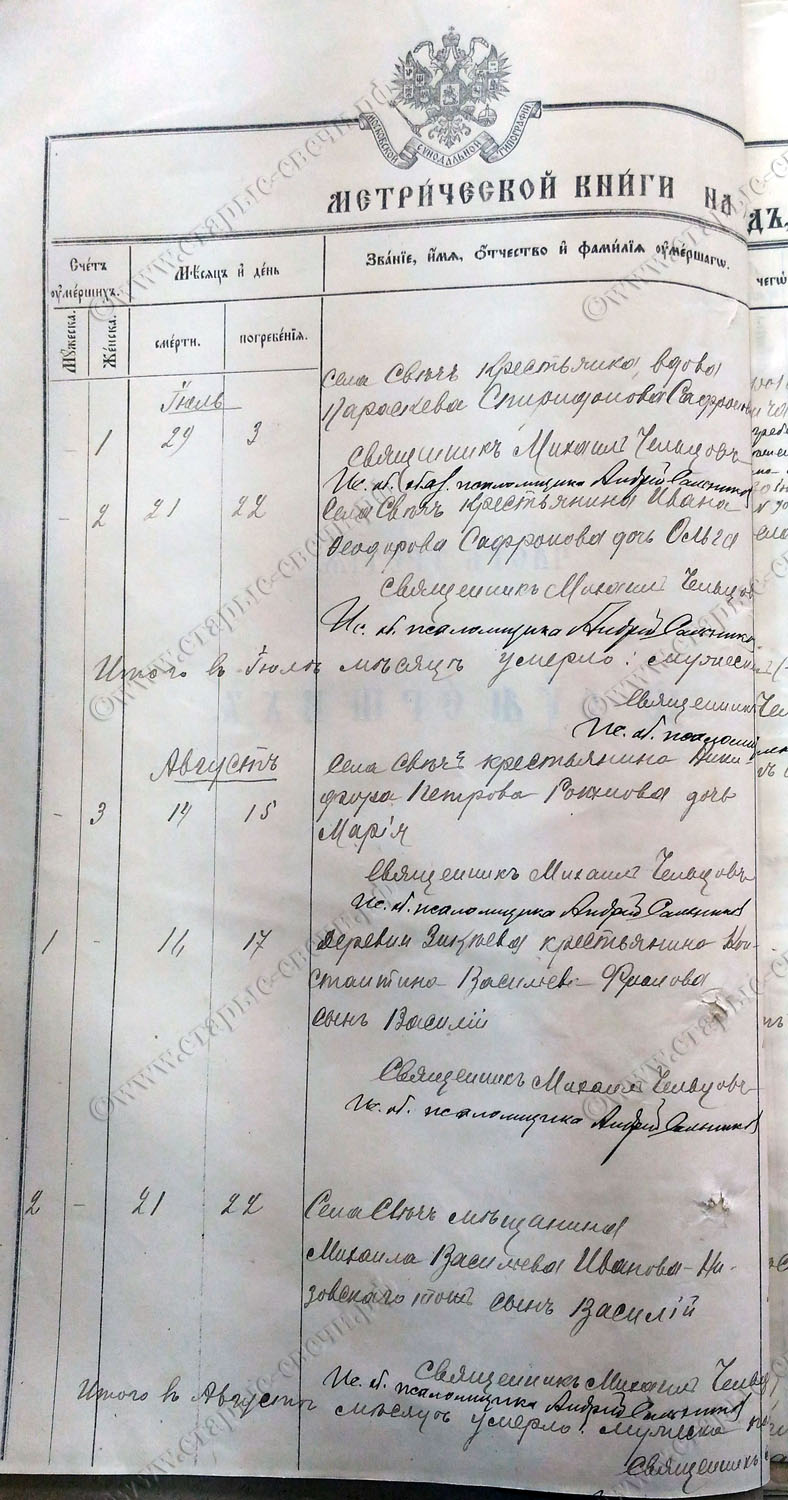 МОСКОВСКОЙ СѴНОДАЛЬНОЙ ТИПОГРАФІИ
МЕТРИ́ЧЕСКОЙ КНИ́ГИ НА
Сче́тъ ᲂу҆ме́ршихъ.
Мѣ́сяцъ и҆ де́нь
Зва́нїе, и҆́мѧ, ѻ҆́тчество и҆ фамилїѧ ᲂу҆ме́ршагѡ.
Мꙋ́жеска.
Же́нска.
сме́рти.
погребе́нїѧ.
села Свѣчъ крестьянка, вдова
Іюль
Параскева Спиридонова Сафронова
- 1 29 3
Священникъ Михаилъ Чельцовъ
Ис. об. псаломщика Андрей
- 2 21 22 Села Свѣчъ крестьянина Ивана
Ѳеодорова Сафронова дочь Ольга
Священникъ Михаилъ Чельцов
Ис. об. псаломщика Андрей
Итого въ Іюлѣ мѣсяцѣ умерло: мужеска
Священникъ
Ис. об. псаломщ
Августъ
Села Свѣчъ крестьянина Ники-
фора Петрова дочь
- 3 14 15
Марія
Священникъ Михаилъ Чельцовъ
Ис. об. псаломщика Андрей
1 - 16 17 деревни крестьянина Кон-
стантина Васильева Фролова
сынъ Василій
Священникъ Михаилъ Чельцовъ
Ис. об. псаломщика Андрей
2 - 21 22 Села Свѣчъ мѣщанина
Михаила Васильева Иванова-Ни-
зовскаго сынъ Василій
Священникъ Михаилъ Чельцов
Ис. об. псаломщика Андрей
Итого въ Августѣ мѣсяцѣ умерло: мужеска
Священникъ
©www.старые-свечи.рф